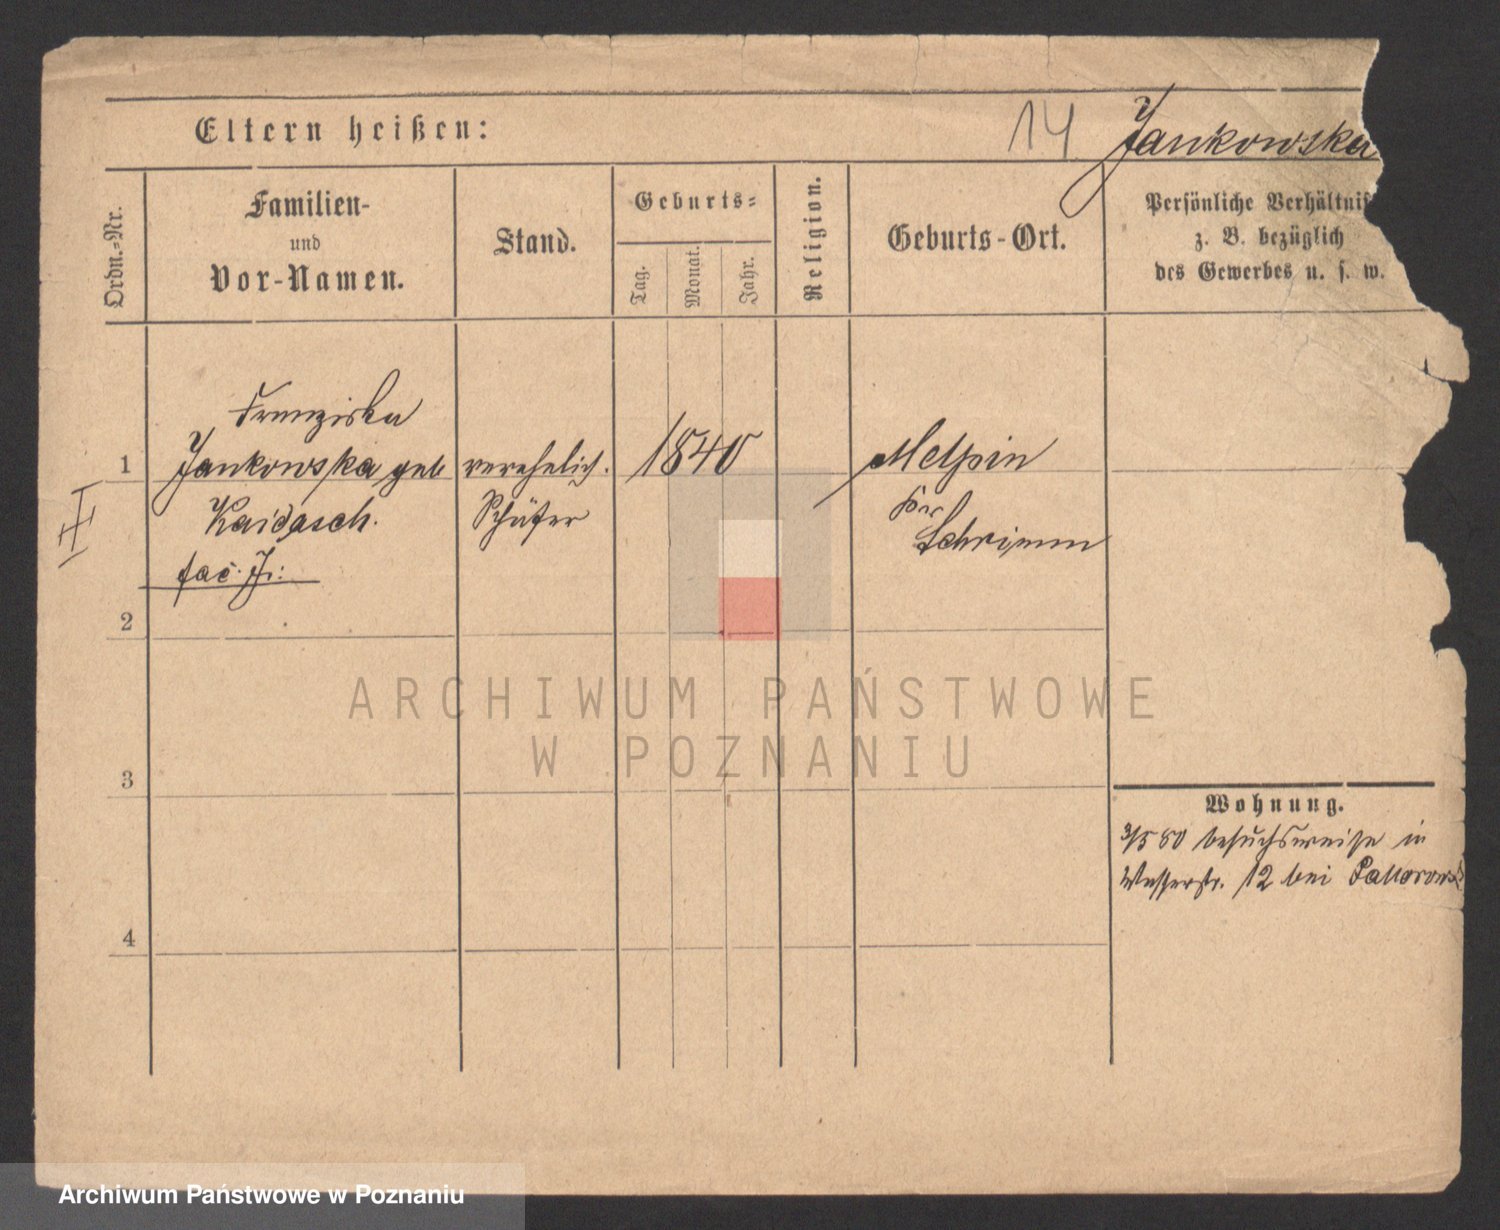 Eltern heißen:
14 Jankowska
Ordn.-Nr.
Familien-
und
Vor-Namen.
Stand.
Geburts-
Tag.
Monat.
Jahr.
Religion.
Geburts-Ort.
Persönliche Verhältnis
z. B. bezüglich
des Gewerbes u. s. w.
Franziska
1 Jankowska geb verehelich. 1840 Melpin
Kaidasch. Schäfer Kr
Schrimm
2
3
4
Wohnung.
3/5 80 besuchsweise in
Wasserstr. 12 bei
ARCHIWUM PAŃSTWOWE
W POZNANIU
Archiwum Państwowe w Poznaniu